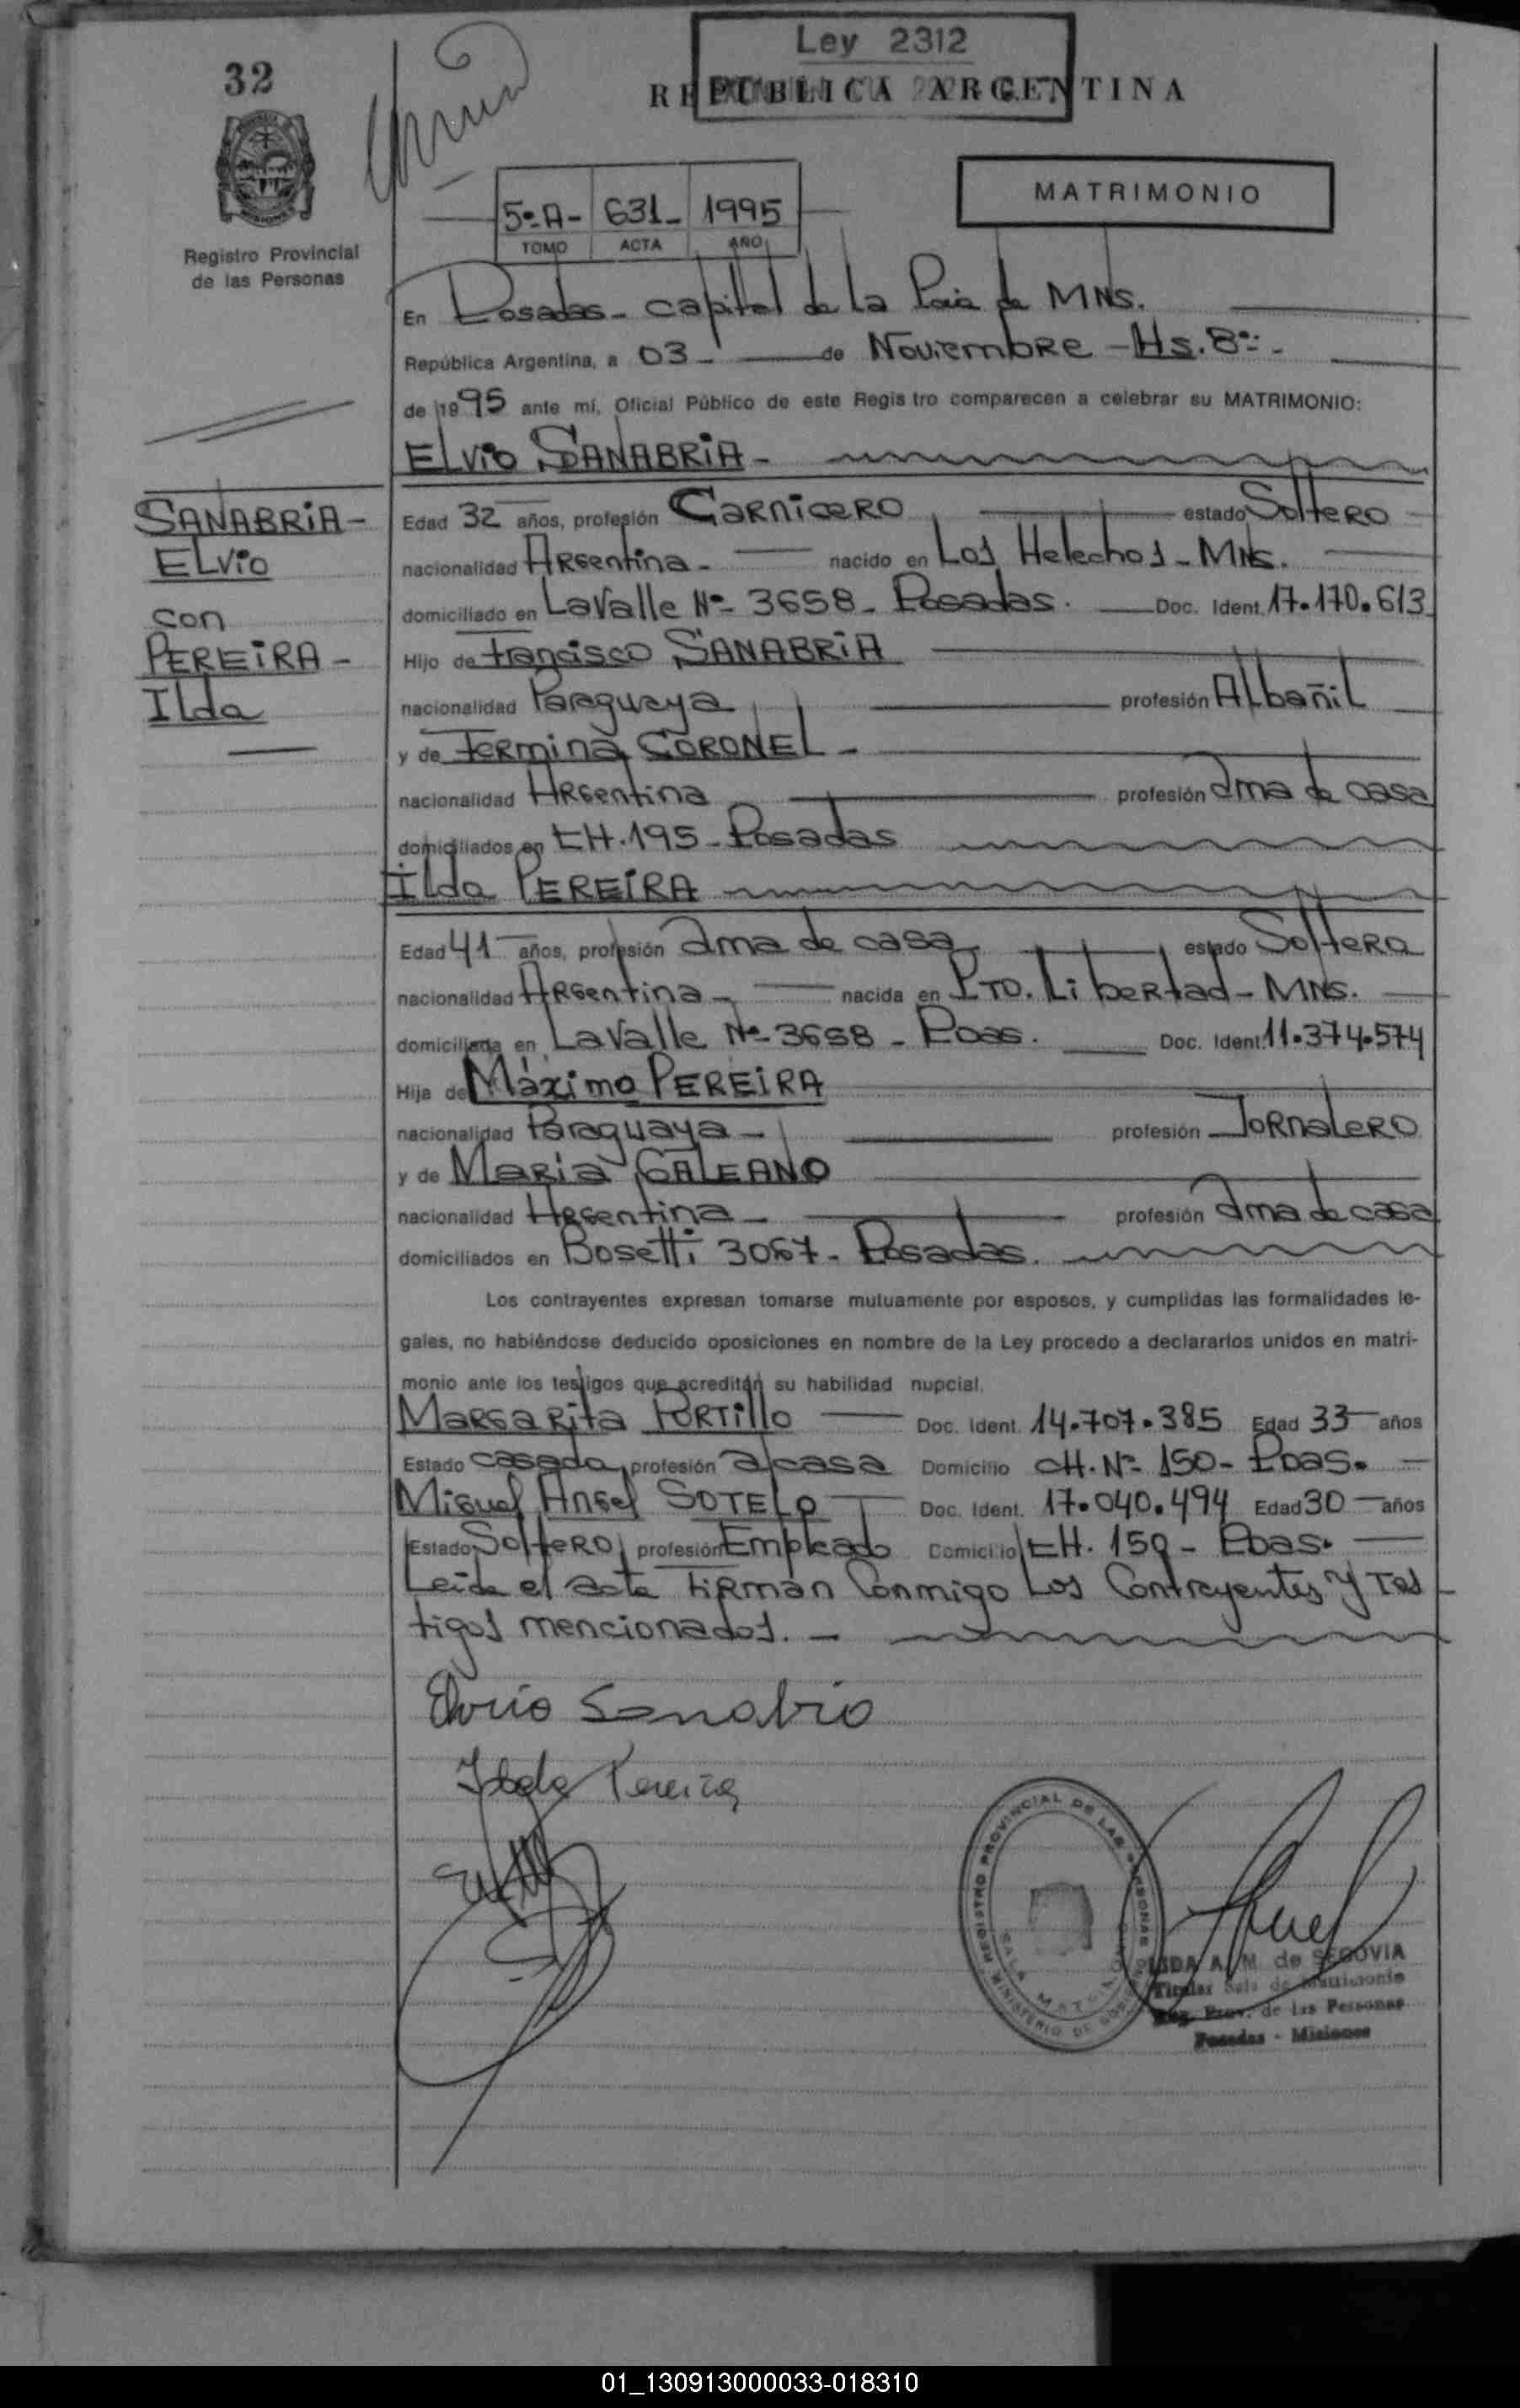 Ley 2312
32
REPÚBLICA ARGENTINA
MATRIMONIO
5º-A- 631- 1995
TOMO ACTA AÑO
Registro Provincial
de las Personas
En Posadas- capital de la Pcia de MNS.
República Argentina, a 03- de Noviembre - Hs. 8º:-
de 1995 ante mí, Oficial Público de este Registro comparecen a celebrar su MATRIMONIO:
ELViO SANABRiA-
SANABRiA-
ELViO
con
PEREiRA-
Ilda
Edad 32 años, profesión Carnicero estado Soltero
nacionalidad Argentina- nacido en Los Helechos- MNS.
domiciliado en Lavalle Nº- 3658- Posadas. Doc. Ident. 17.170.613
Hijo de Francisco SANABRiA
nacionalidad Paraguaya profesión Albañil
y de Fermina CORONEL-
nacionalidad Argentina profesión ama de casa
domiciliados en CH.195- Posadas
Ilda PEREiRA
Edad 41 años, profesión ama de casa estado Soltera
nacionalidad Argentina- nacida en Pto. Libertad- MNS.
domiciliada en Lavalle Nº- 3658- Pdas. Doc. Ident. 11.374.574
Hija de Máximo PEREiRA
nacionalidad Paraguaya- profesión Jornalero
y de Maria GALEANO
nacionalidad Argentina- profesión ama de casa
domiciliados en Bosetti 3067- Posadas.
Los contrayentes expresan tomarse mutuamente por esposos, y cumplidas las formalidades le-
gales, no habiéndose deducido oposiciones en nombre de la Ley procedo a declararlos unidos en matri-
monio ante los testigos que acreditán su habilidad nupcial.
Margarita PORTillo Doc. Ident. 14.707.385 Edad 33 años
Estado casada profesión a/casa Domicilio CH. Nº- 150- Pdas.
Miguel Angel SOTELO Doc. Ident. 17.040.494 Edad 30 años
Estado Soltero profesión Empleado Domicilio CH. 150- Pdas.
Leida el acta firman Conmigo Los Contrayentes y Tes
tigos mencionados.-
Elvio Sanabria
Ilda Pereira
REGISTRO PROVINCIAL DE LAS PERSONAS
MINISTERIO DE
SALA
A. M. de SEGOVIA
Titular Sala de Matrimonio
Reg. Prov. de las Personas
Posadas - Misiones
01_130913000033-018310